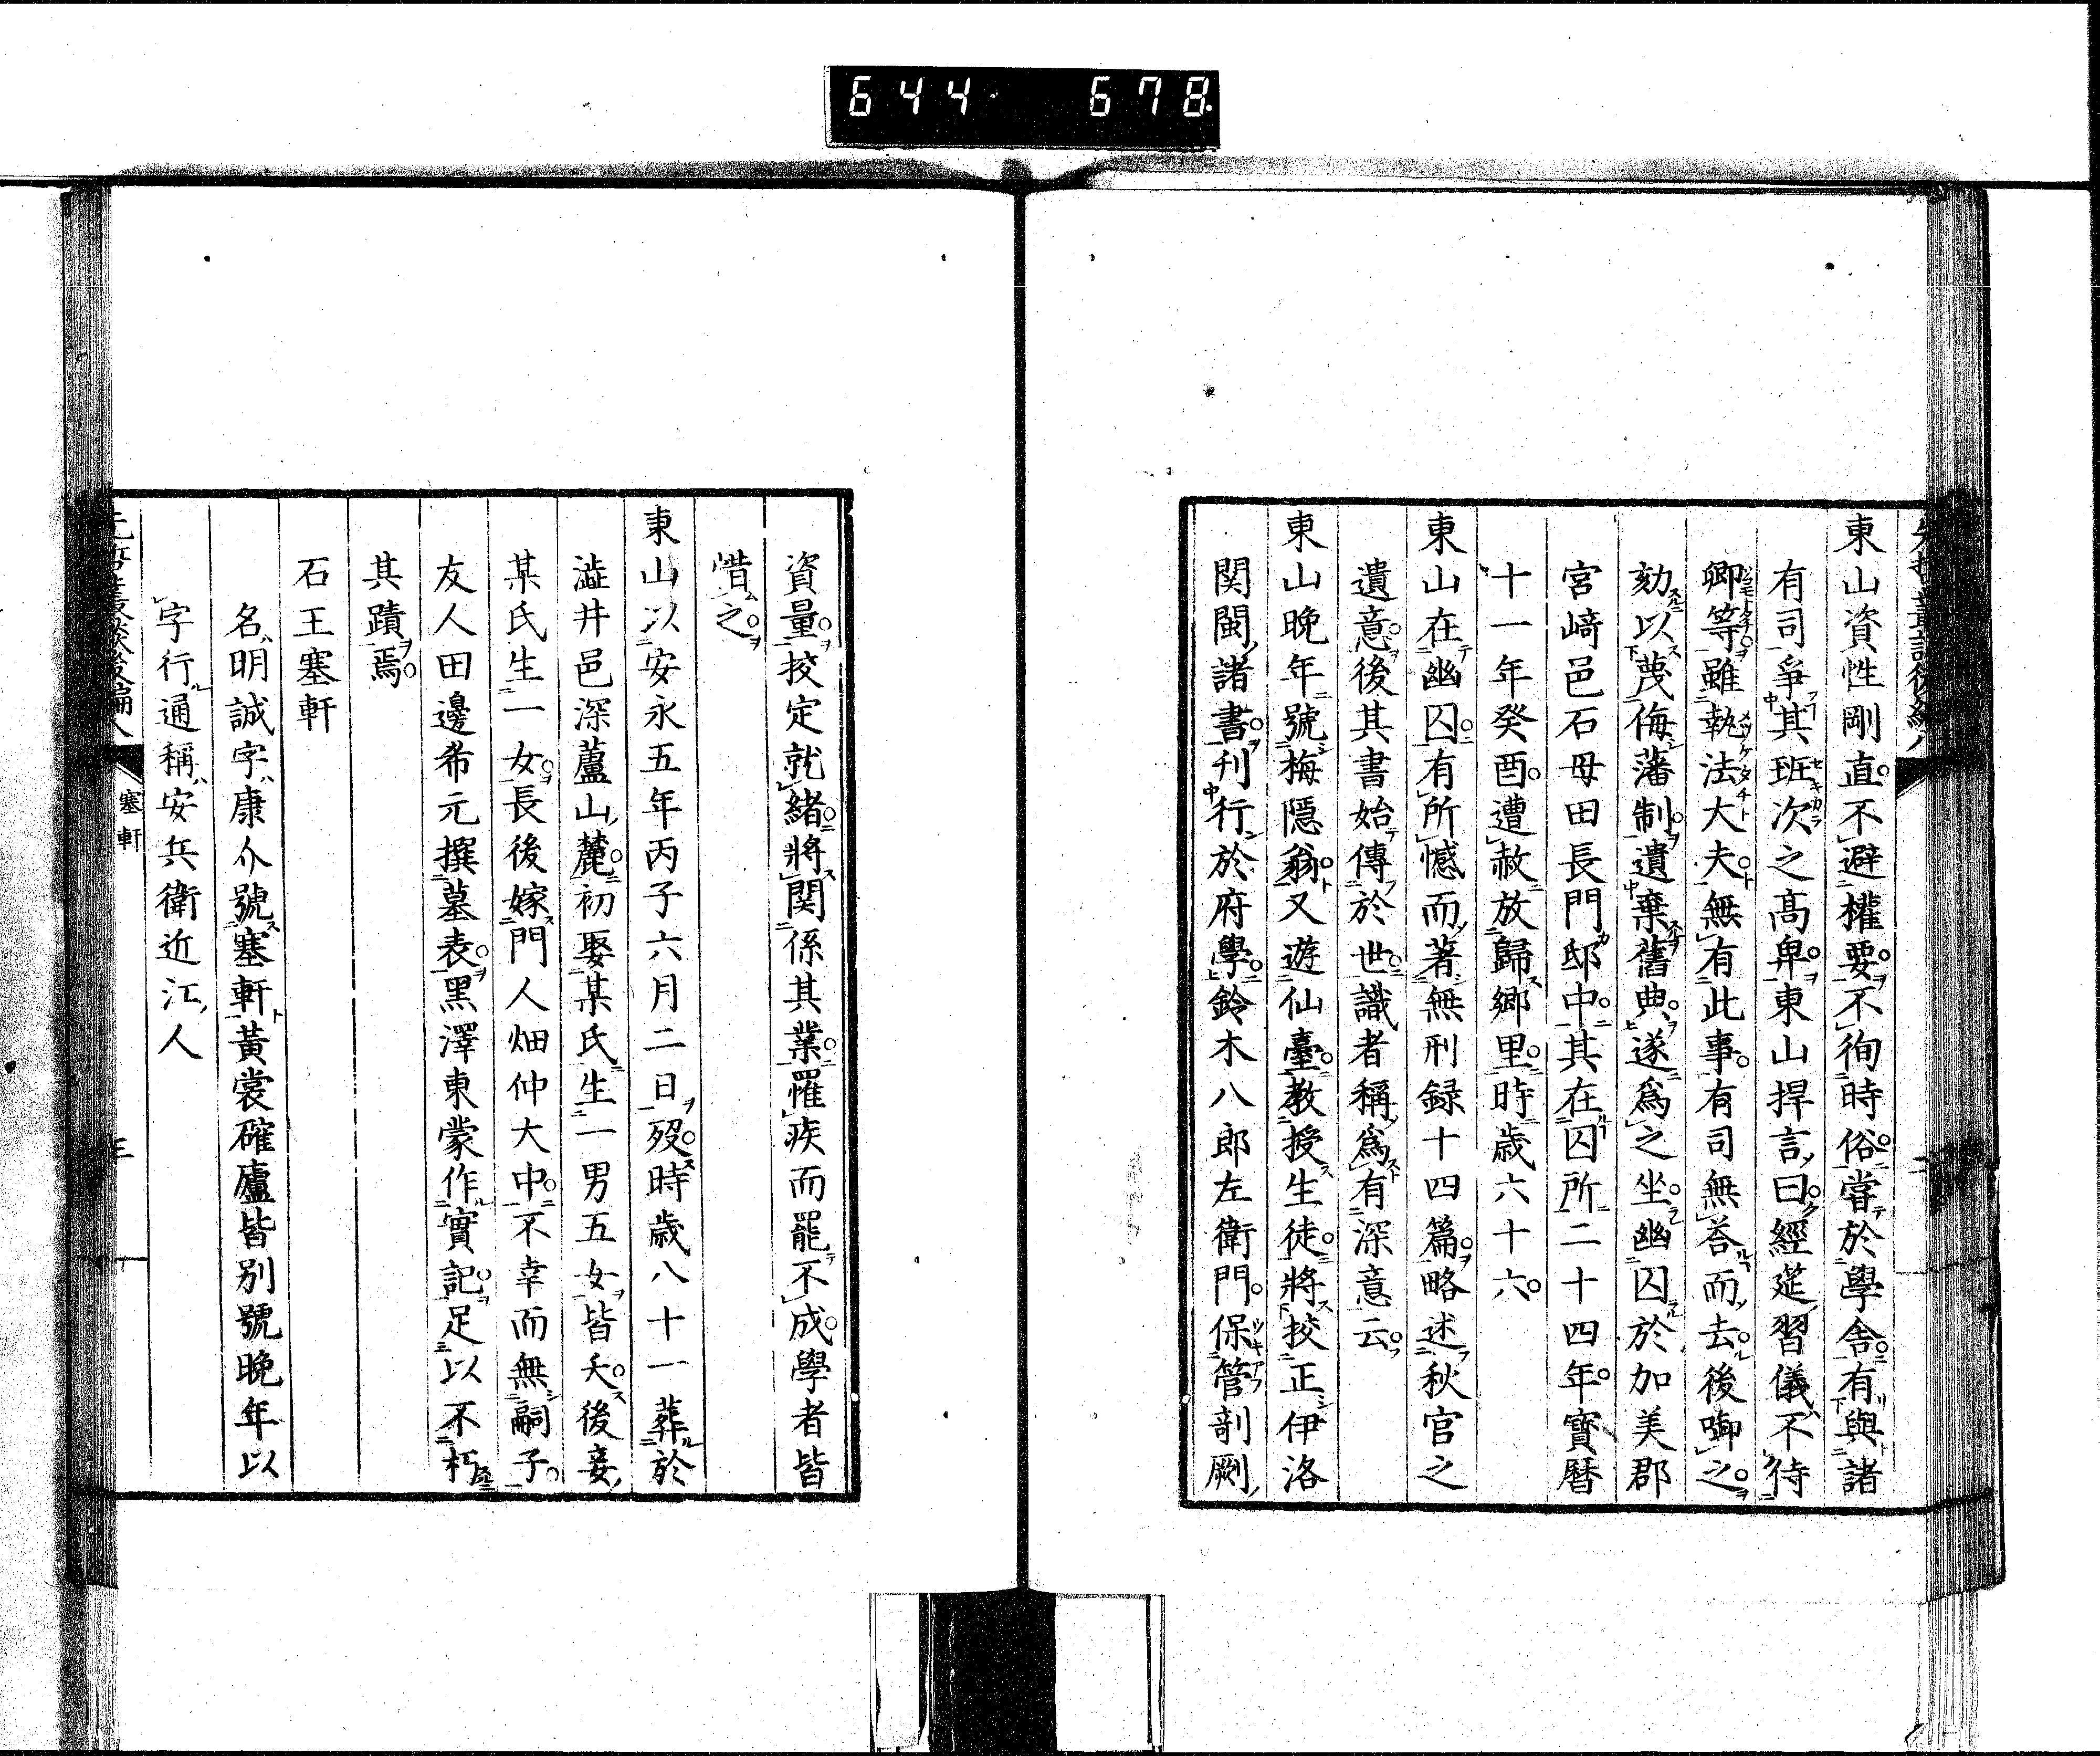 644 678
東山資性剛直不避權要不徇時俗嘗於學舍有與諸
有司爭其班次之高卑東山捍言曰經筵習儀不待
卿等雖執法大夫無有此事有司無答而去後啣之
劾以蔑侮藩制遺棄舊典遂爲之坐幽囚於加美郡
宮﨑邑石母田長門邸中其在囚所二十四年寶曆
十一年癸酉遭赦放歸鄉里時歳六十六
東山在幽囚有所憾而著無刑録十四篇略述秋官之
遺意後其書始傳於世識者稱爲有深意云
東山晩年號梅隱翁又遊仙臺教授生徒將挍正伊洛
関閩諸書刊行於府學鈴木八郎左衛門保管剞劂
資量挍定就緒將関係其業罹疾而罷不成學者皆
惜之
東山以安永五年丙子六月二日歿時歳八十一葬於
澁井邑深蘆山麓初娶某氏生一男五女皆夭後妾
某氏生一女長後嫁門人畑仲大中不幸而無嗣子
友人田邊希元撰墓表黑澤東蒙作實記足以不朽
其蹟焉
石王塞軒
名明誠字康介號塞軒黃裳確廬皆別號晩年以
字行通稱安兵衛近江人
塞軒